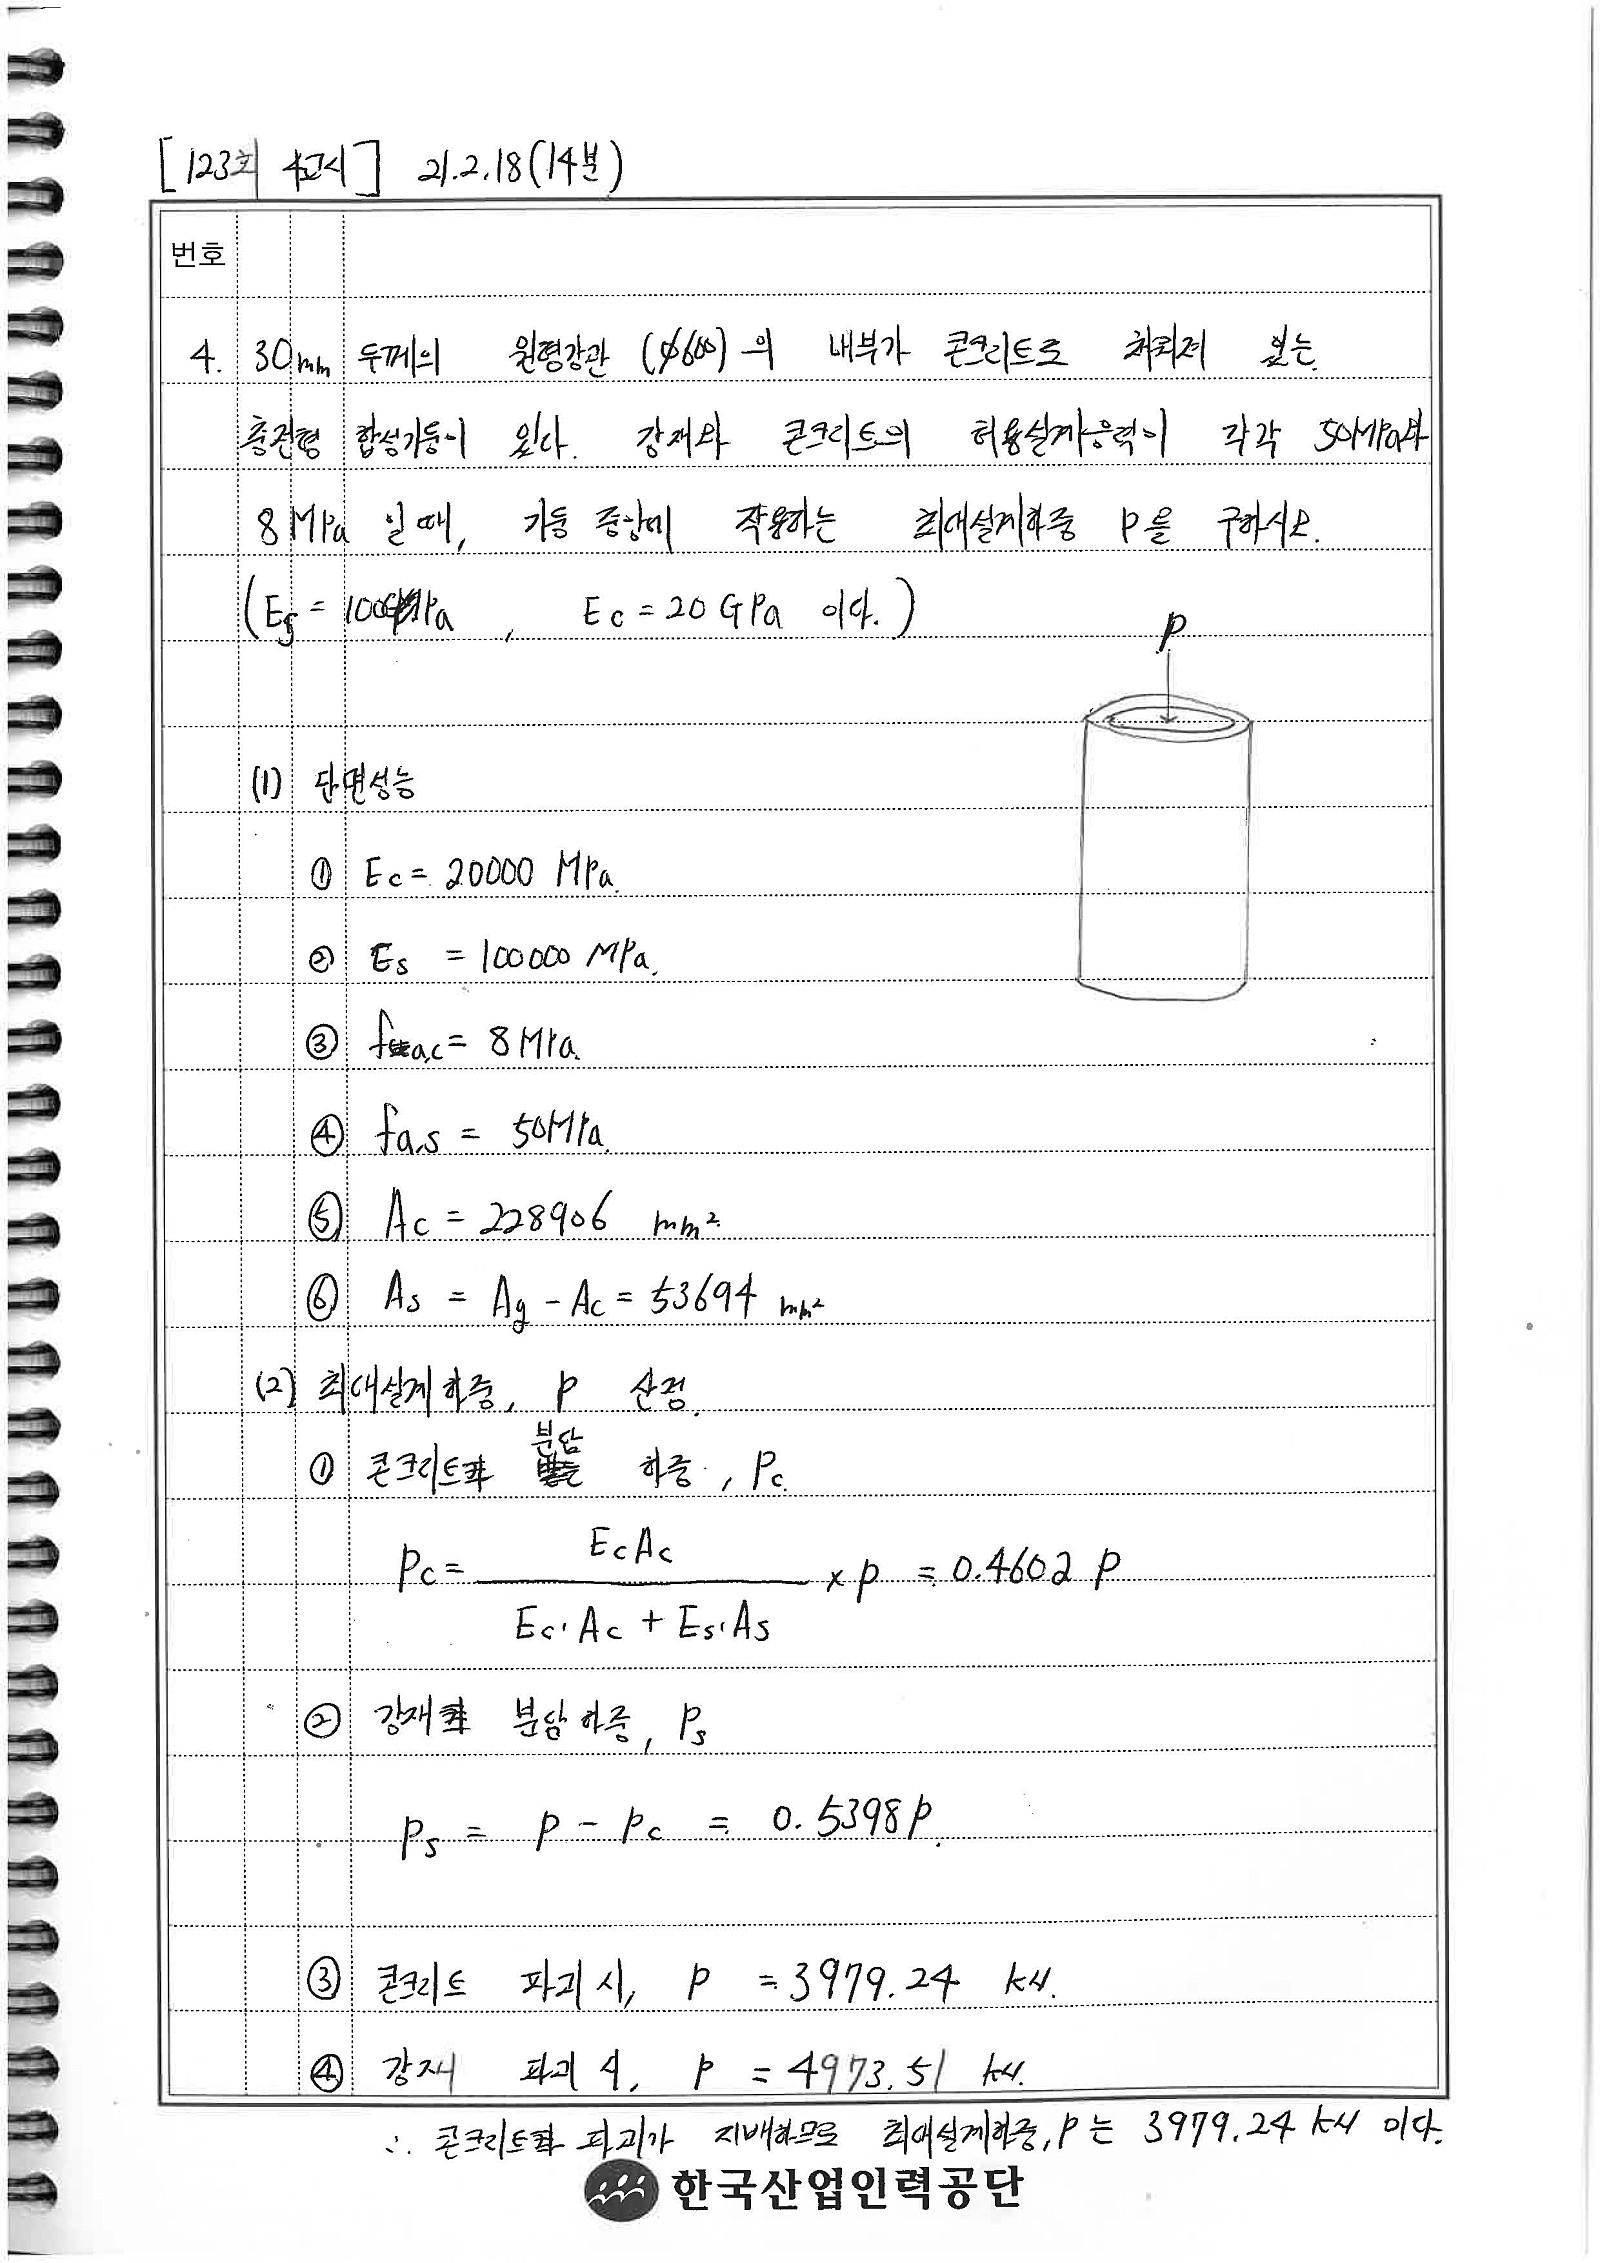 [123회 4교시] 21.2.18 (14분)
번호
4. 30mm 두께의 원형강관 (φ600)의 내부가 콘크리트로 채워져 있는
충전형 합성기둥이 있다. 강재와 콘크리트의 허용설계응력이 각각 50MPa와
8MPa 일 때, 기둥 중앙에 작용하는 최대설계하중 P를 구하시오.
(Es = 100GPa, Ec = 20GPa 이다.)
P
(1) 단면성능
① Ec = 20000 MPa.
② Es = 100000 MPa.
③ fa,c = 8MPa.
④ fa,s = 50MPa.
⑤ Ac = 228906 mm²
⑥ As = Ag - Ac = 53694 mm²
(2) 최대설계하중, P 산정.
① 콘크리트 분담 하중, Pc.
Pc = EcAc / (Ec·Ac + Es·As) × P = 0.4602 P
② 강재 분담하중, Ps
Ps = P - Pc = 0.5398P.
③ 콘크리트 파괴시, P = 3979.24 kN.
④ 강재 파괴시, P = 4973.51 kN.
∴ 콘크리트 파괴가 지배하므로 최대설계하중, P는 3979.24 kN 이다.
한국산업인력공단